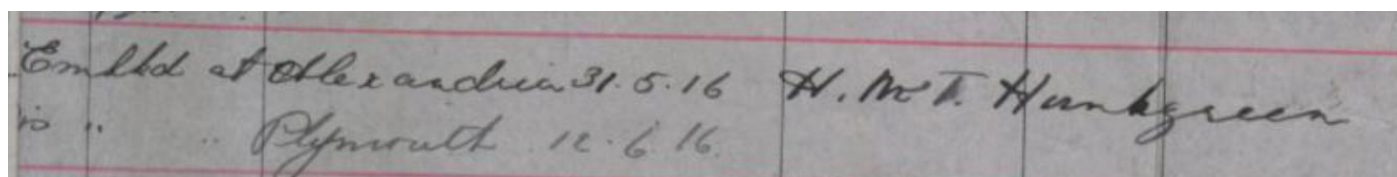 Embkd at Alexandria 31.5.16 H.M.T. Hunkgreen
Dis " " Plymouth 12.6.16.